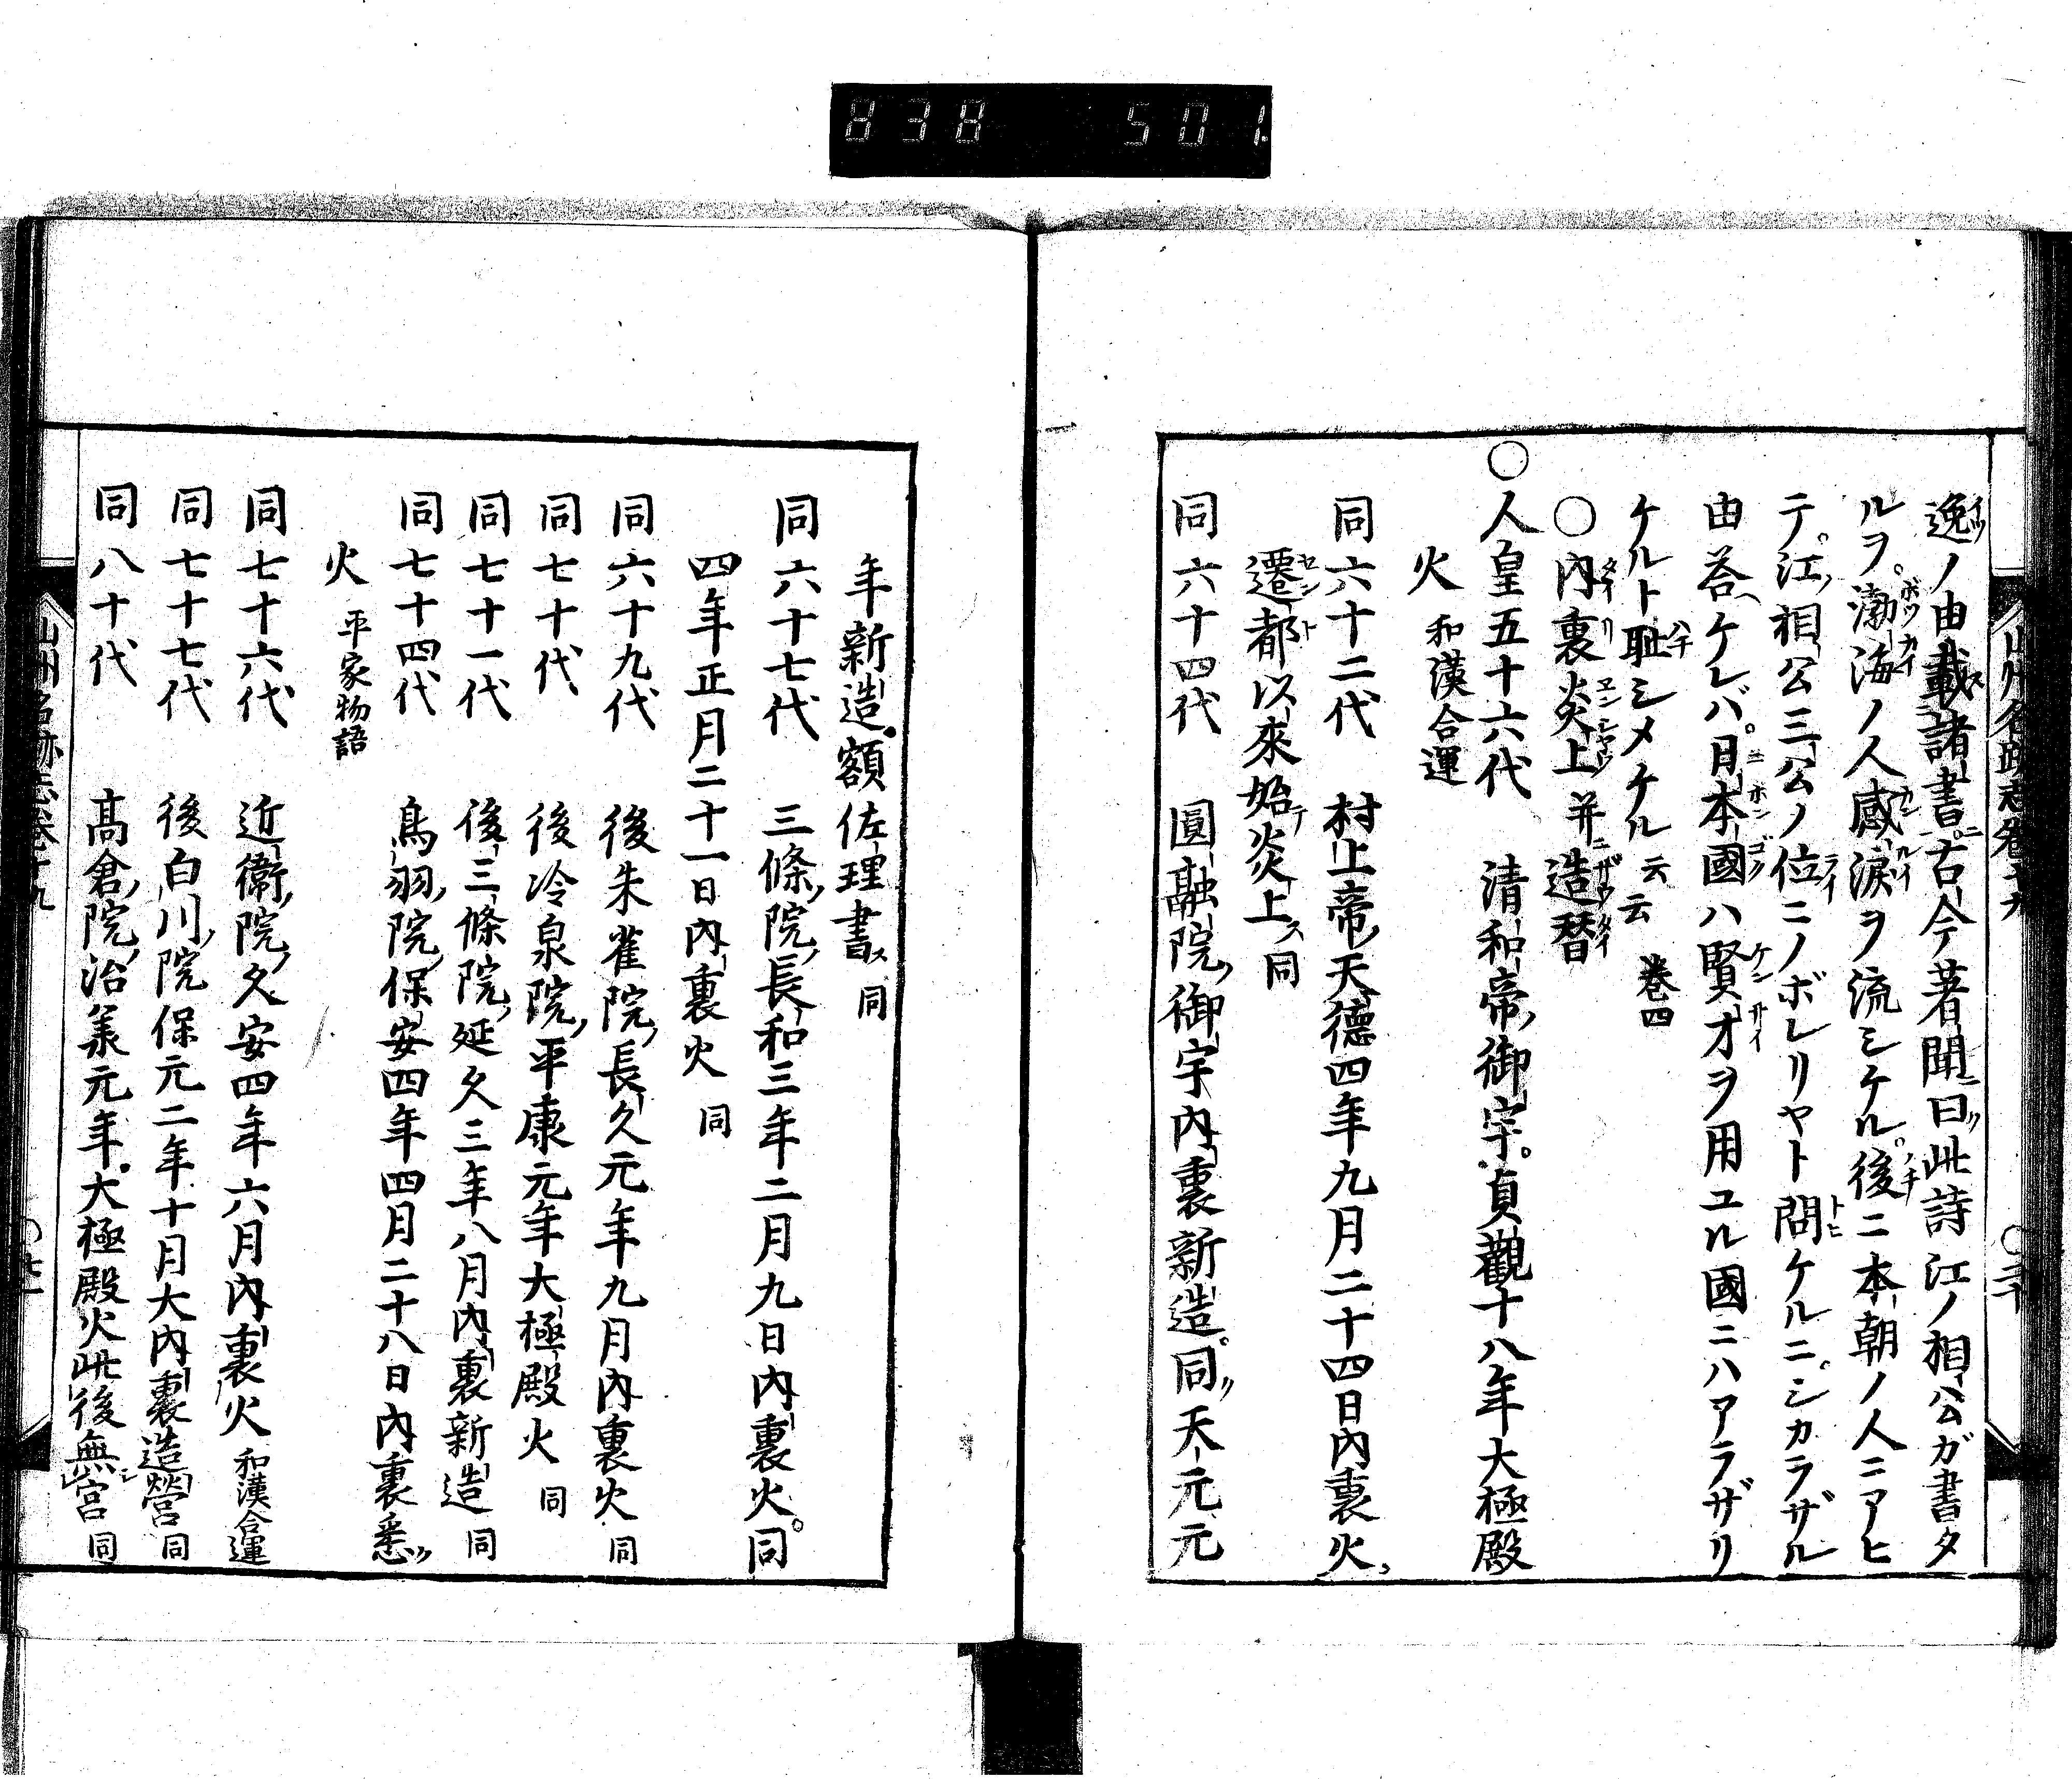 838 501
逸ノ由載諸書。古今著聞曰此詩江ノ相公ガ書タ
ルヲ。渤海ノ人感涙ヲ流シケル。後ニ本朝ノ人ニアヒ
テ。江相公三公ノ位ニノボレリヤト問ケルニ。シカラザル
由荅ケレバ。日本國ハ賢才ヲ用ユル國ニハアラザリ
ケルト耻シメケル云云 巻四
○內裏炎上并造替
○人皇五十六代 清和帝御宇。貞觀十八年大極殿
火 和漢合運
同六十二代 村上帝天德四年九月二十四日內裏火
遷都以來始炎上 同
同六十四代 圓融院御宇內裏新造。同天元元
年新造。額佐理書 同
同六十七代 三條院長和三年二月九日內裏火。同
四年正月二十一日內裏火 同
同六十九代 後朱雀院長久元年九月內裏火 同
同七十代 後冷泉院平康元年大極殿火 同
同七十一代 後三條院延久三年八月內裏新造 同
同七十四代 鳥羽院保安四年四月二十八日內裏悉
火 平家物語
同七十六代 近衞院久安四年六月內裏火 和漢合運
同七十七代 後白川院保元二年十月大內裏造營 同
同八十代 髙倉院治承元年大極殿火此後無宮 同